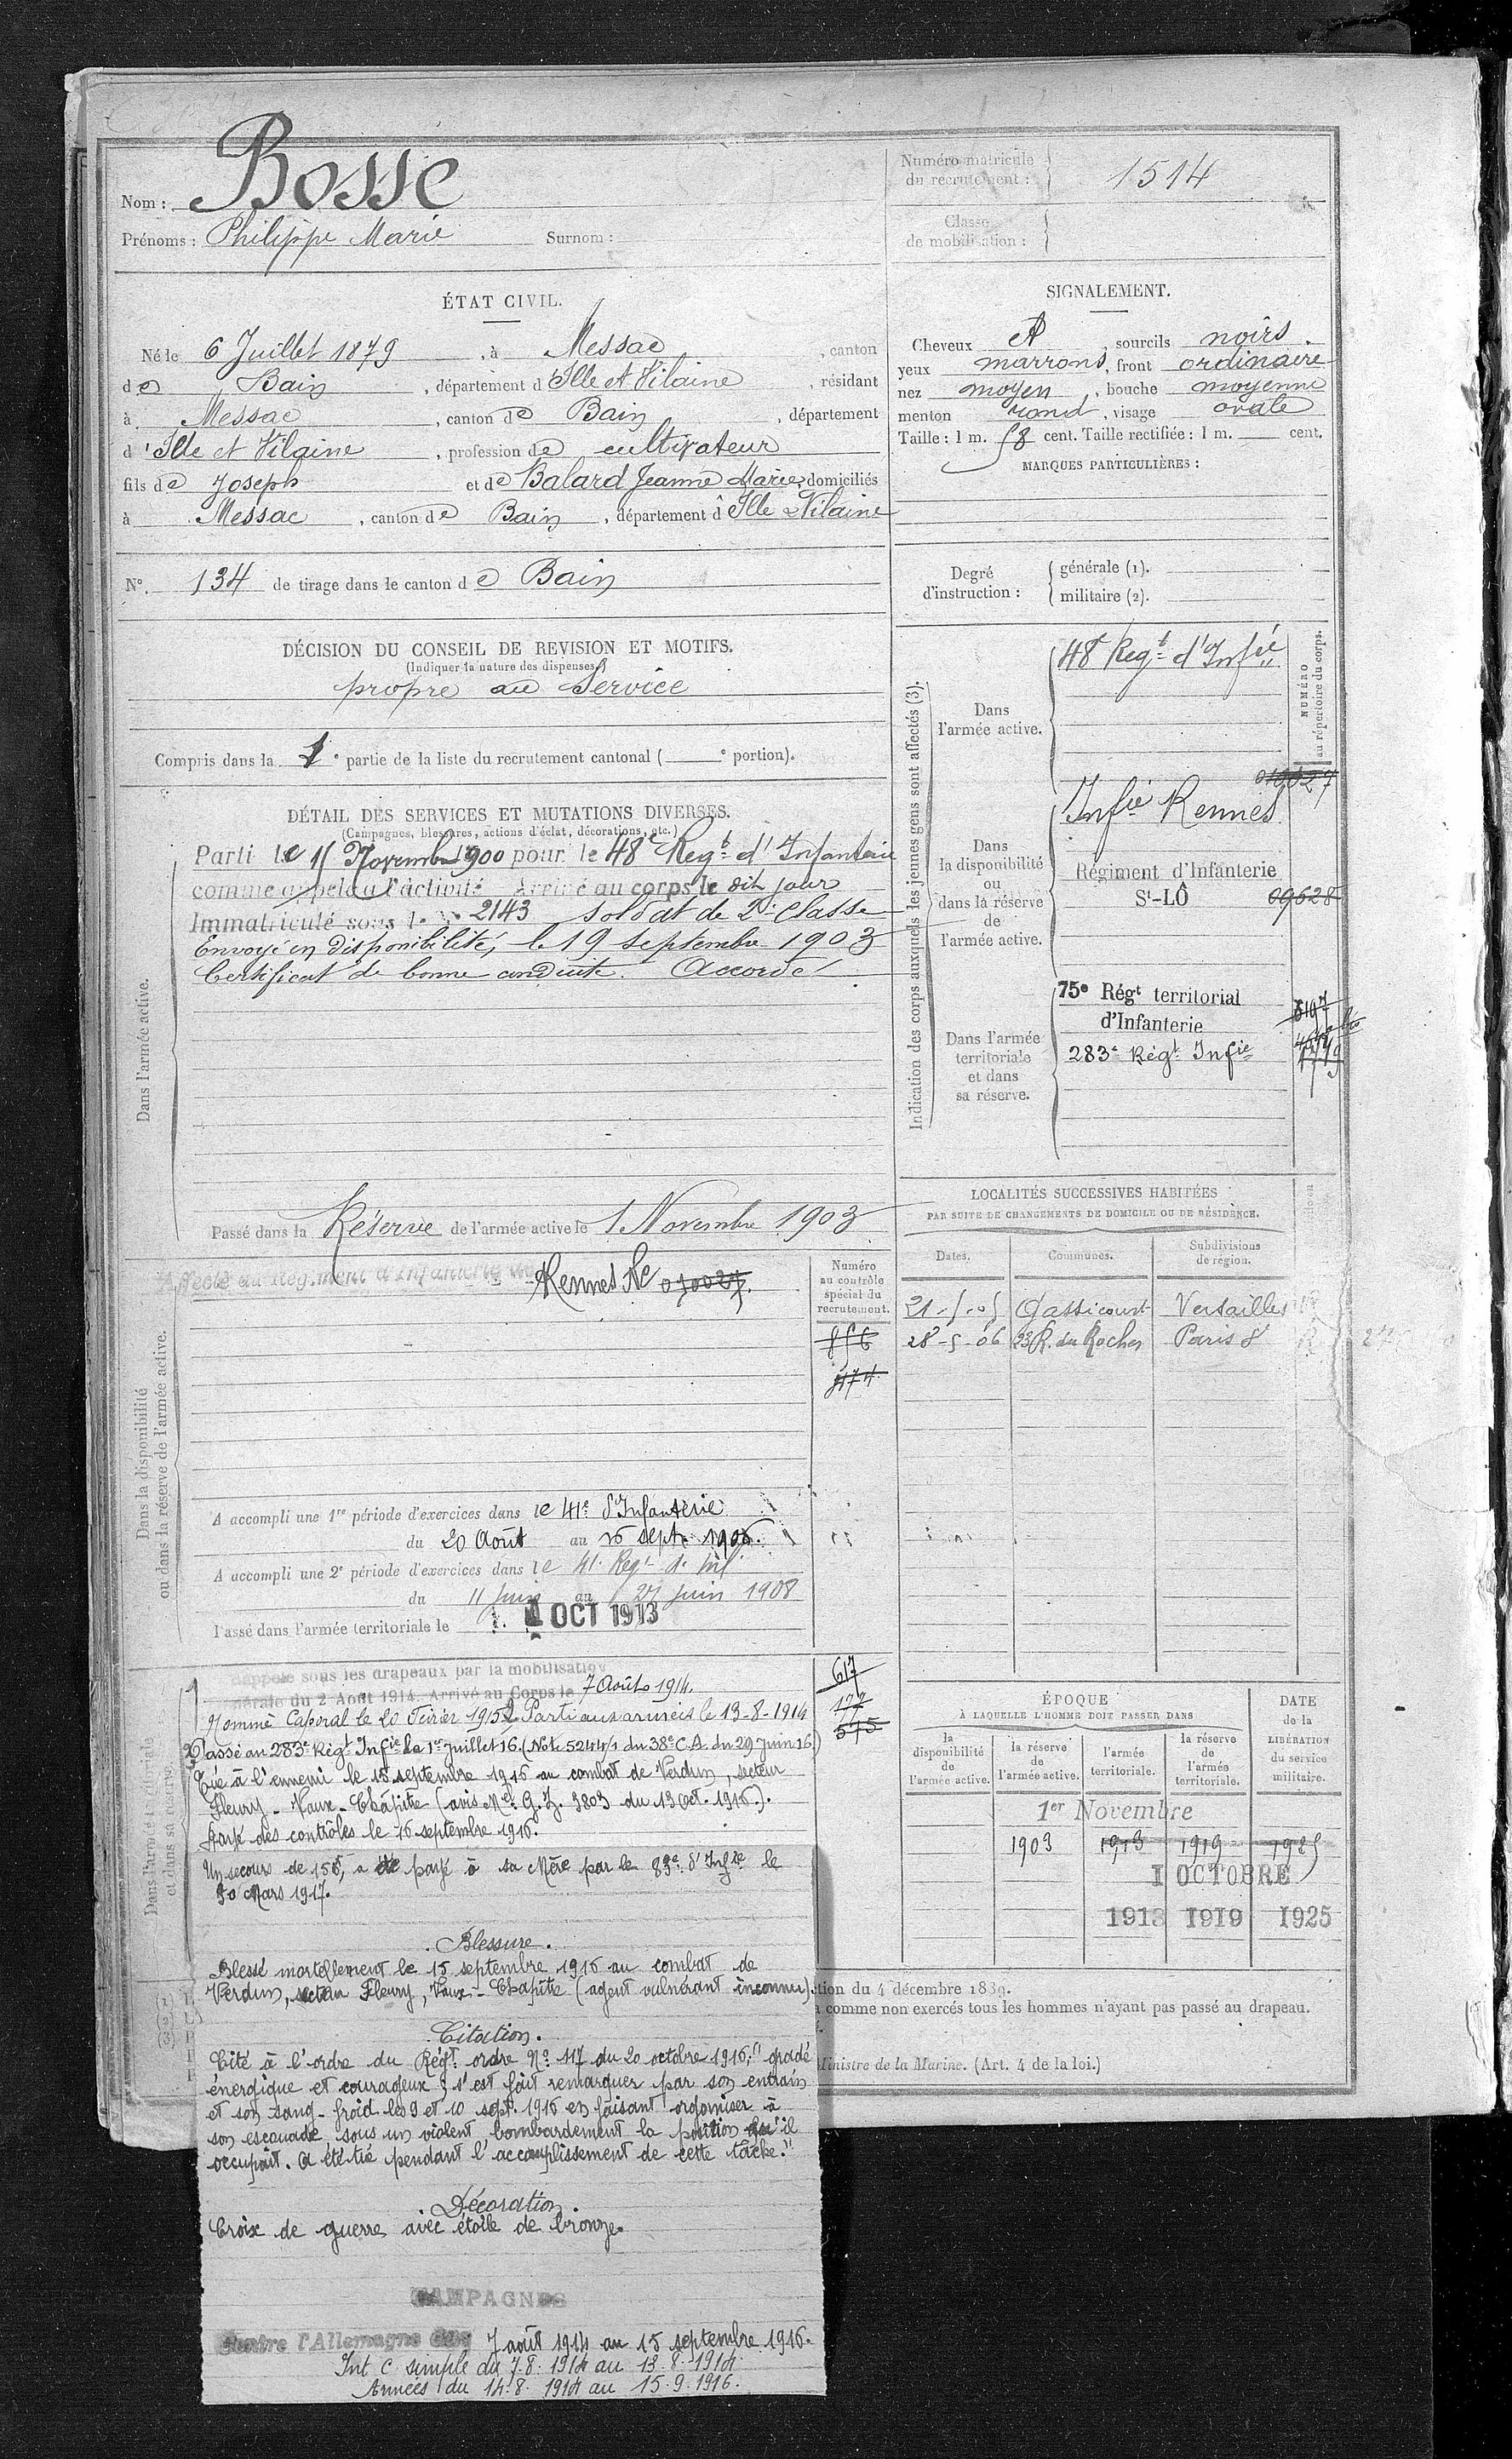 Nom : Bosse
Prénoms : Philippe Marie Surnom :
Numéro matricule
du recrutement : 1514
Classe
de mobilisation :
ÉTAT CIVIL.
Né le 6 Juillet 1879, à Messac, canton
de Bain, département d'Ille et Vilaine, résidant
à Messac, canton de Bain, département
d'Ille et Vilaine, profession de cultivateur
fils de Joseph et de Balard Jeanne Marie, domiciliés
à Messac, canton de Bain, département d'Ille & Vilaine
N° 134 de tirage dans le canton de Bain
SIGNALEMENT.
Cheveux et, sourcils noirs.
yeux marrons, front ordinaire
nez moyen, bouche moyenne
menton rond, visage ovale
Taille : 1 m. 58 cent. Taille rectifiée : 1 m. cent.
MARQUES PARTICULIÈRES :
Degré
d'instruction :
générale (1).
militaire (2).
DÉCISION DU CONSEIL DE REVISION ET MOTIFS.
(Indiquer la nature des dispenses)
propre au Service
Compris dans la 1e partie de la liste du recrutement cantonal ( e portion).
DÉTAIL DES SERVICES ET MUTATIONS DIVERSES.
(Campagnes, blessures, actions d'éclat, décorations, etc.)
Dans l'armée active.
Parti le 15 Novembre 1900 pour le 48e Regt d'Infanterie
comme appelé à l'activité Arrivé au corps le dit jour
Immatriculé sous le No 2143 soldat de 2e classe
Envoyé en disponibilité, le 19 septembre 1903
Certificat de bonne conduite. Accordé
Passé dans la Réserve de l'armée active le 1 Novembre 1903
Indication des corps auxquels les jeunes gens sont affectés (3).
NUMÉRO
au répertoire du corps.
Dans
l'armée active.
48e Regt d'Infie
Dans
la disponibilité
ou
dans la réserve
de
l'armée active.
Infie Rennes
Régiment d'Infanterie
St-LÔ 09628
Dans l'armée
territoriale
et dans
sa réserve.
75e Régt territorial
d'Infanterie
283e Régt Infie
LOCALITÉS SUCCESSIVES HABITÉES
PAR SUITE DE CHANGEMENTS DE DOMICILE OU DE RÉSIDENCE.
Dates. Communes. Subdivisions
de région.
21-5-05 Gassicourt Versailles
28-5-06 23 R. du Rocher Paris 8e
Dans la disponibilité
ou dans la réserve de l'armée active.
Affecté au Régiment d'Infanterie de Rennes
Numéro
au contrôle
spécial du
recrutement.
856
A accompli une 1re période d'exercices dans le 41e d'Infanterie
du 20 Août au 16 sept. 1906.
A accompli une 2e période d'exercices dans le 41e Regt d'Inf
du 11 Juin au 27 Juin 1908
Passé dans l'armée territoriale le 1 OCT 1913
Dans l'armée territoriale
et dans sa réserve.
Rappelé sous les drapeaux par la mobilisation
générale du 2 Août 1914. Arrivé au Corps le 7 Août 1914.
Nommé Caporal le 20 Février 1915. Parti aux armées le 13-8-1914
Passé au 283e Régt Infie Le 1er Juillet 16. (Note 5244/1 du 38e C.A. du 29 Juin 16.)
Tué à l'ennemi le 15 septembre 1916 au combat de Verdun, secteur
Fleury - Vaux-Chapitre (avis Mel G.Z. 3803 du 13 Oct. 1916).
Rayé des contrôles le 16 septembre 1916.
617
177
575
Un secours de 150f, a été payé à sa Mère par le 83e d'Infie le
30 Mars 1917.
Blessure.
Blessé mortellement le 15 septembre 1916 au combat de
Verdun, secteur Fleury, Vaux-Chapitre (agent vulnérant inconnu)
Citation.
Cité à l'ordre du Régt ordre No 117 du 20 octobre 1916 : "gradé
énergique et courageux ; s'est fait remarquer par son entrain
et son sang-froid les 9 et 10 sept. 1916 en faisant organiser à
son escouade sous un violent bombardement la position qu'il
occupait. A été tué pendant l'accomplissement de cette tâche."
Décoration.
Croix de guerre avec étoile de bronze.
CAMPAGNES
Contre l'Allemagne du 7 août 1914 au 15 septembre 1916.
Int C simple du 7.8.1914 au 13.8.1914
Armées du 14.8.1914 au 15.9.1916.
ÉPOQUE
À LAQUELLE L'HOMME DOIT PASSER DANS
DATE
de la
LIBÉRATION
du service
militaire.
la
disponibilité
de
l'armée active.
la réserve
de
l'armée active.
l'armée
territoriale.
la réserve
de
l'armée
territoriale.
1er Novembre
1903 1913 1919 1925
1 OCTOBRE
1913 1919 1925
tion du 4 décembre 1889.
comme non exercés tous les hommes n'ayant pas passé au drapeau.
Ministre de la Marine. (Art. 4 de la loi.)